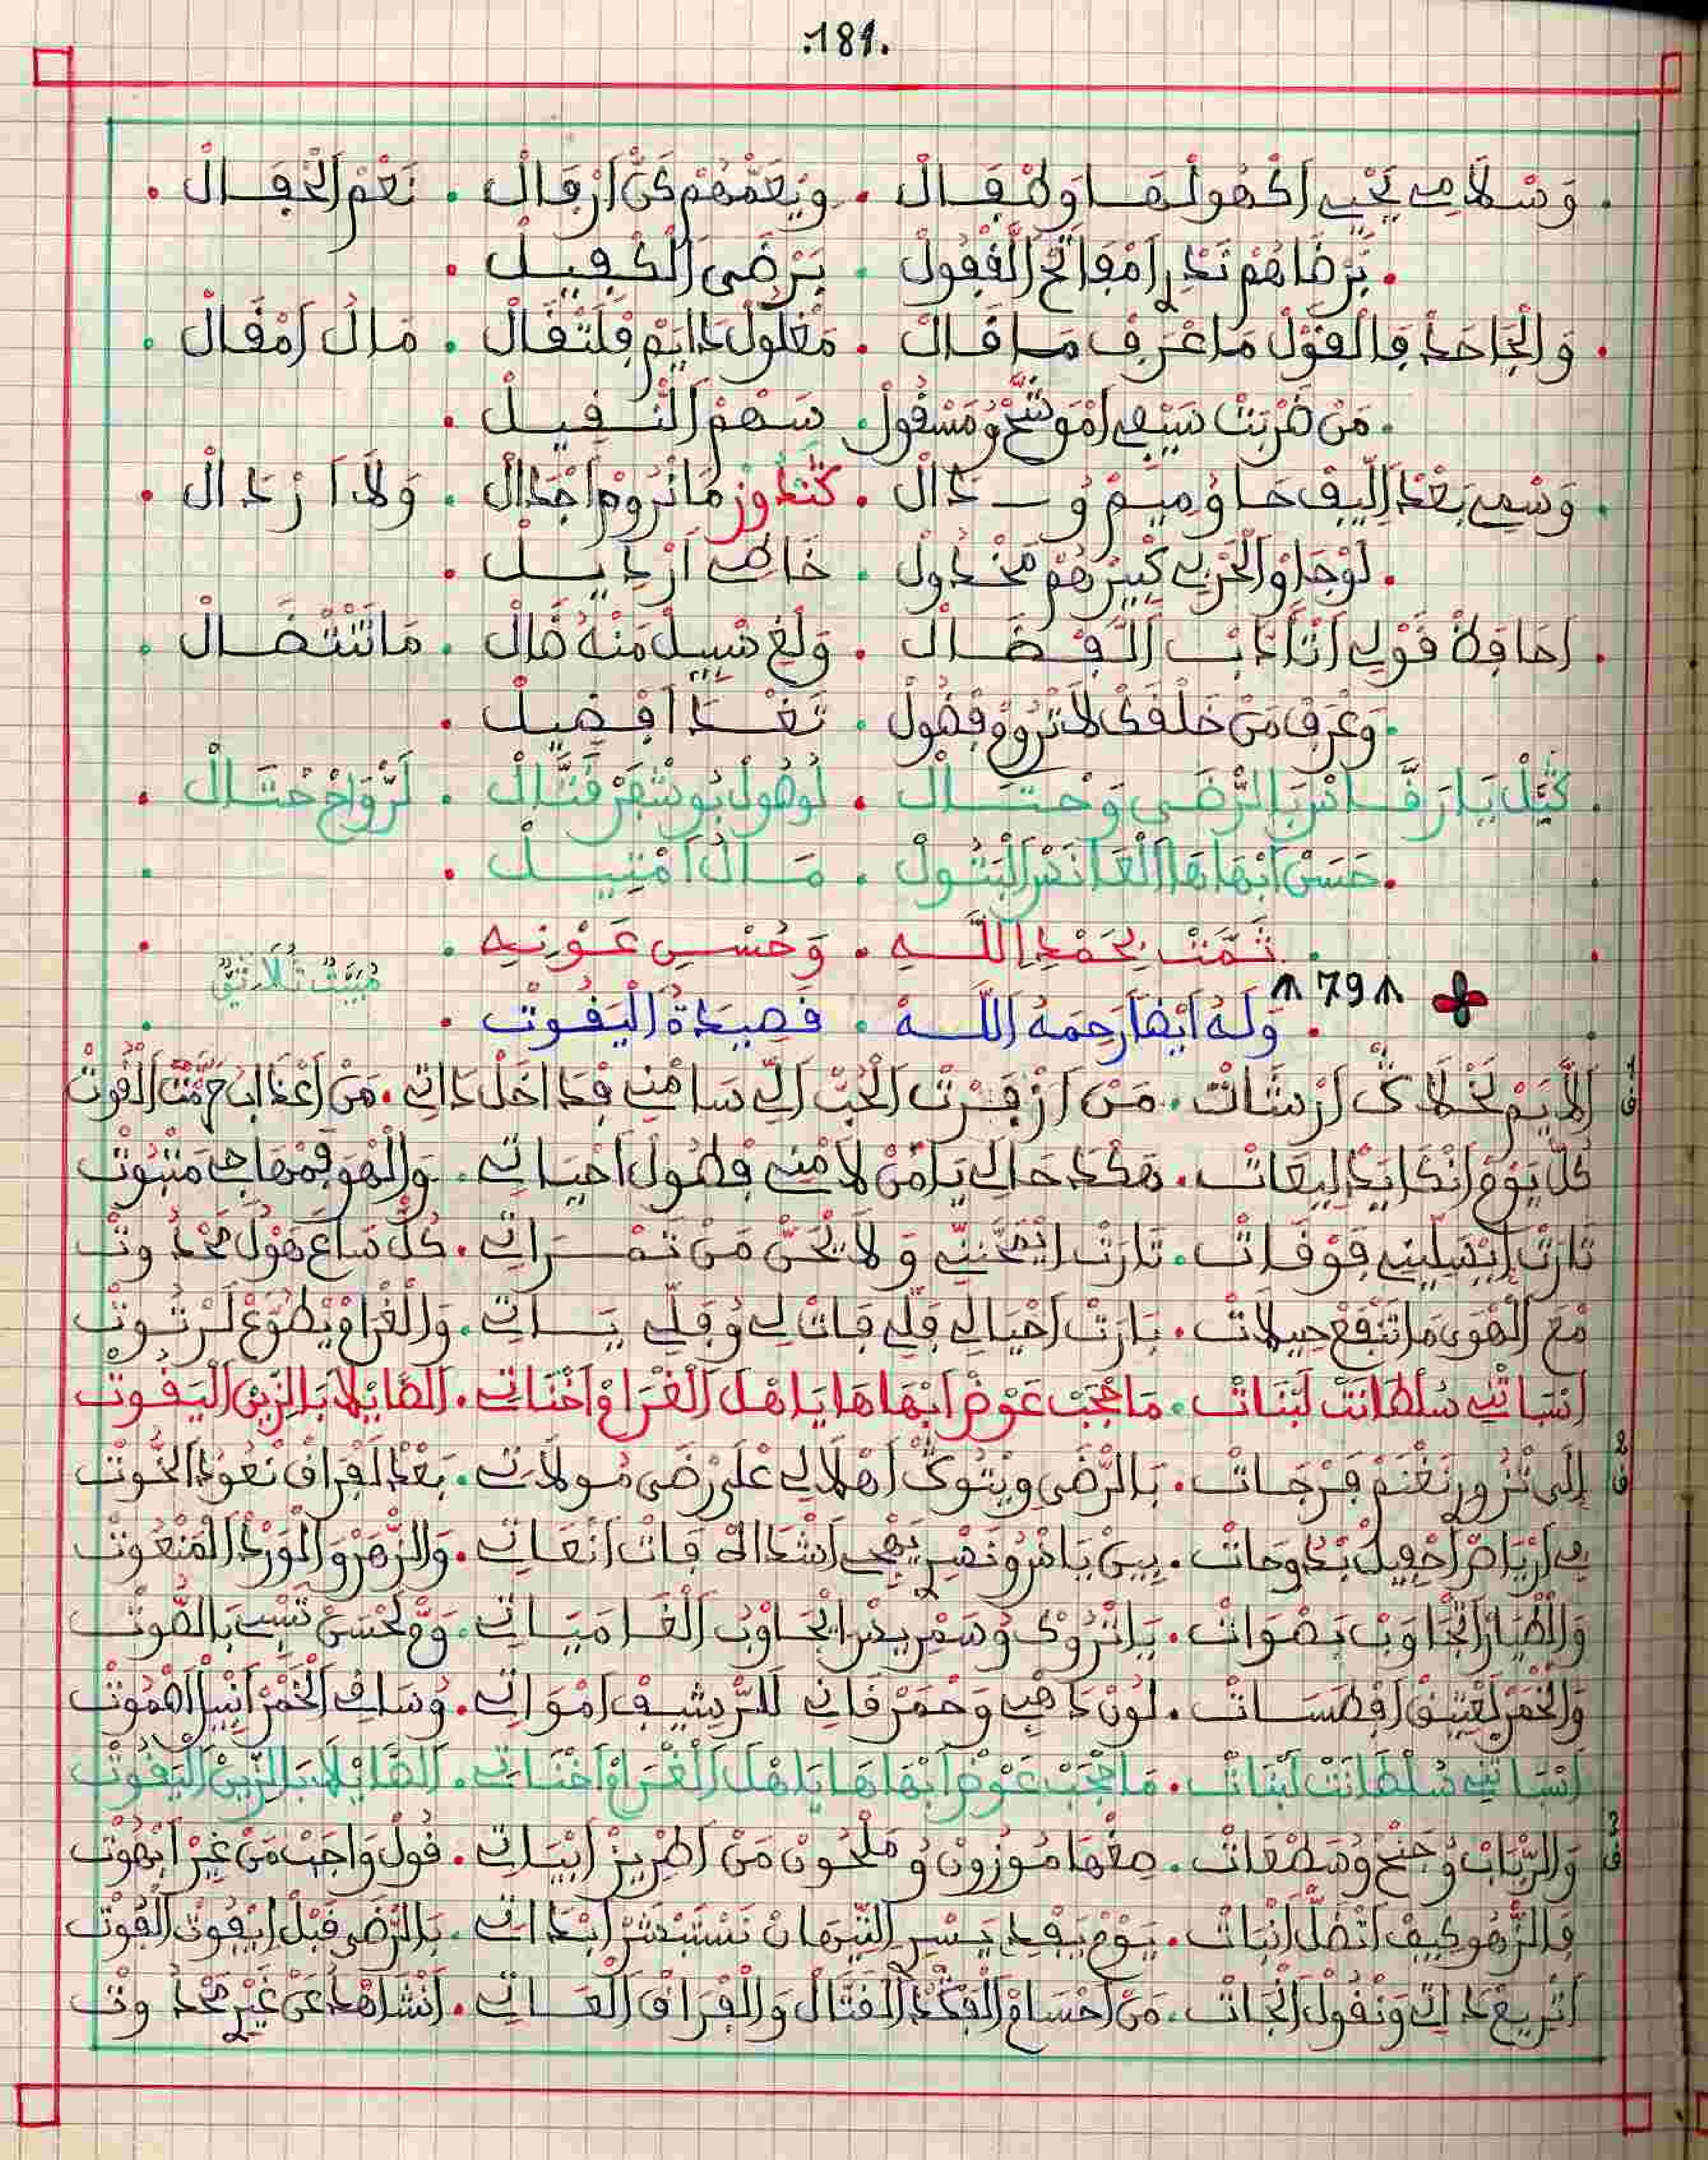 .181.
وَسْلَامِي يَحْيِي اكْهُولْهَا وَطْفَالْ . وَيْعَمّْهُمْ كَنّْ ارْقَالْ . نَعْمْ الْحْفَالْ .
. بَرْضَاهُمْ نَدِي امْفَاتَحْ الْقْفُولْ . بَرْضَى الْكْفِيلْ .
. وَالْجَاحَدْ فَالْقَوْلْ مَا عْرَفْ مَا قَالْ . مَغْلُولْ دَايَمْ فَلَتْقَالْ . مَالُ امْقَالْ .
. مَنْ ضَرْبَتْ سَيْفِي امْوَشَّحْ وُمَسْقُولْ . سَهْمْ النّْفِيلْ .
. وَسْمِي بَعْدْ الِيفْ حَا وُمِيمْ وُدَالْ . كَنْدُوزْ مَا نْرُومْ اجْدَالْ . وَلَا ارْدَالْ .
. لَوْجَاوْ الْحَرْبِي كْبِيرْهُمْ مَخْدُولْ . خَاطِي ارْدِيلْ .
. احَافِظْ قَوْلِي انْتَ ادَابْ الْفْضَالْ . وَلْغِ سِيلْ مَنْهُ ضَالْ . مَا تَنْتْضَالْ .
. وَعْرَفْ مَنْ خَلْفَكْ لَا تْرُومْ فْضُولْ . تَغْدَا افْضِيلْ .
. كَيّْلْ يَا رَقَّاسْ بَالرّْضَى وَحْتَالْ . لُوهُولْ بُو شْفَرْ قَتَّالْ . لَرْوَاحْ خْتَالْ .
. حَسْنْ ابْهَاهَا الْعَانَسْ الْبْتُولْ . مَالُ امْتِيلْ .
تَمَّتْ بِحَمْدِ اللَّهِ . وَحُسْنِ عَوْنِهِ .
مْبَيَّتْ تُلَاثِيّْ
79
. وَلَهُ أَيْضاً رَحِمَهُ اللَّهْ . قَصِيدَةُ الْيَقُوتْ .
ق1 الَايَمْ لَخْلَاكْ ارْشَاتْ . مَنْ ازْفَرْتْ الْحُبّْ الِّي سَامْنِي فْدَاخَلْ دَاتِي . مَنْ اعْدَابُ حَرَّمْتْ الْقُوتْ
كُلّْ يَوْمْ انْكَابَدْ لِيعَاتْ . هَكْدَا حَالِي يَا مَنْ لَامْنِي فْطُولْ احْيَاتِي . وَالْهْوَى قَهْمْهَا هِيَ مَتْبُوتْ
تَارَتْ ايْسَلِّينِي فَوْقَاتْ . تَارَتْ ايْمَحَّنِّي وَلَا يْحَنّْ مَنْ تَمْرَاتِي . كُلّْ سَاعَ هَوْلُ مَحْدُوتْ
مْعَ الْهْوَى مَا تَنْفَعْ حِيلَاتْ . بَارَتْ احْيَالِي فَلِّي فَاتْ لِي وُفَلِّي يَاتِي . وَالْغْرَامْ يْطَوَّعْ لَرْتُوتْ
انْسَاتْنِي سُلْطَانَتْ لَبْنَاتْ . مَا عْجَبْ عَوْضْ ابْهَاهَا يَا هْلْ الْغْرَامْ اخْنَاتِي . الضَّايْلَا بَالزِّينْ الْيَقُوتْ
ق2 إِلَى تْزُورْ نَغْنَمْ فَرْجَاتْ . بَالرّْضَى وِيتُوكْ اهْلَالِي عْلَى رْضَى مُولَاتِي . بَعْدْ لَفْرَاقْ نْعُودْ الْخُوتْ
فِي ارْيَاضْ احْفِيلْ بْدُوحَاتْ . بِينْ يَاسْ وُنَصْرِي يْهِي انْشْدَالُ فَاتْ انْعَاتِي . وَالزّْهَرْ وَالْوَرْدْ الْمَنْعُوتْ
وَالطْيَارْ اتْجَاوَبْ بَصْوَاتْ . يَا تْرُوكْ وُسَمْرِيسْ ايْجَاوْبُ الْغَا مَبْيَاتِي . وَمّْ لَحْسَنْ تَسْبِي بَالصُّوتْ
وَالْخْمَرْ لَعْتِيقْ افْطَسَاتْ . لُونْ دَاهْبِي وَحْمَرْ قَانِي لَلرّْشِيفْ امْوَاتِي . وُسَاقِي الْخَمْرْ انْبِيلْ اهْمُوتْ
انْسَاتْنِي سُلْطَانَتْ لَبْنَاتْ . مَا عْجَبْ عَوْضْ ابْهَاهَا يَا هْلْ الْغْرَامْ اخْنَاتِي . الضَّايْلَا بَالزِّينْ الْيَقُوتْ
ق3 وَالرّْبَابْ وُجَنْحْ وُسَطْعَاتْ . مِعْهَا مُوزُونْ وُمَلْحُونْ مَنْ اطْرِيزْ ابْيَاتِي . قُولْ وَاجَبْ مَنْ غِيرْ ابْهُوتْ
فَالزّْهُو كِيفْ انْضَلّْ انْبَاتْ . يَوْمْ يَفْجِي يَسْرِي التِّيهَانْ نَسْتَبْشَرْ ابْدَاتِي . بَالرّْضَى قْبَلْ ايْفُوتْ الْفُوتْ
اتْرِيعْ دَاتِي وَنْقُولْ انْجَاتْ . مَنْ احْسَامْ الْفَكْدْ الْقَتَّالْ وَالْفْرَاقْ الْعَاتِي . انْشَاهْدْ عَنْ غِيرْ مَحْدُوتْ